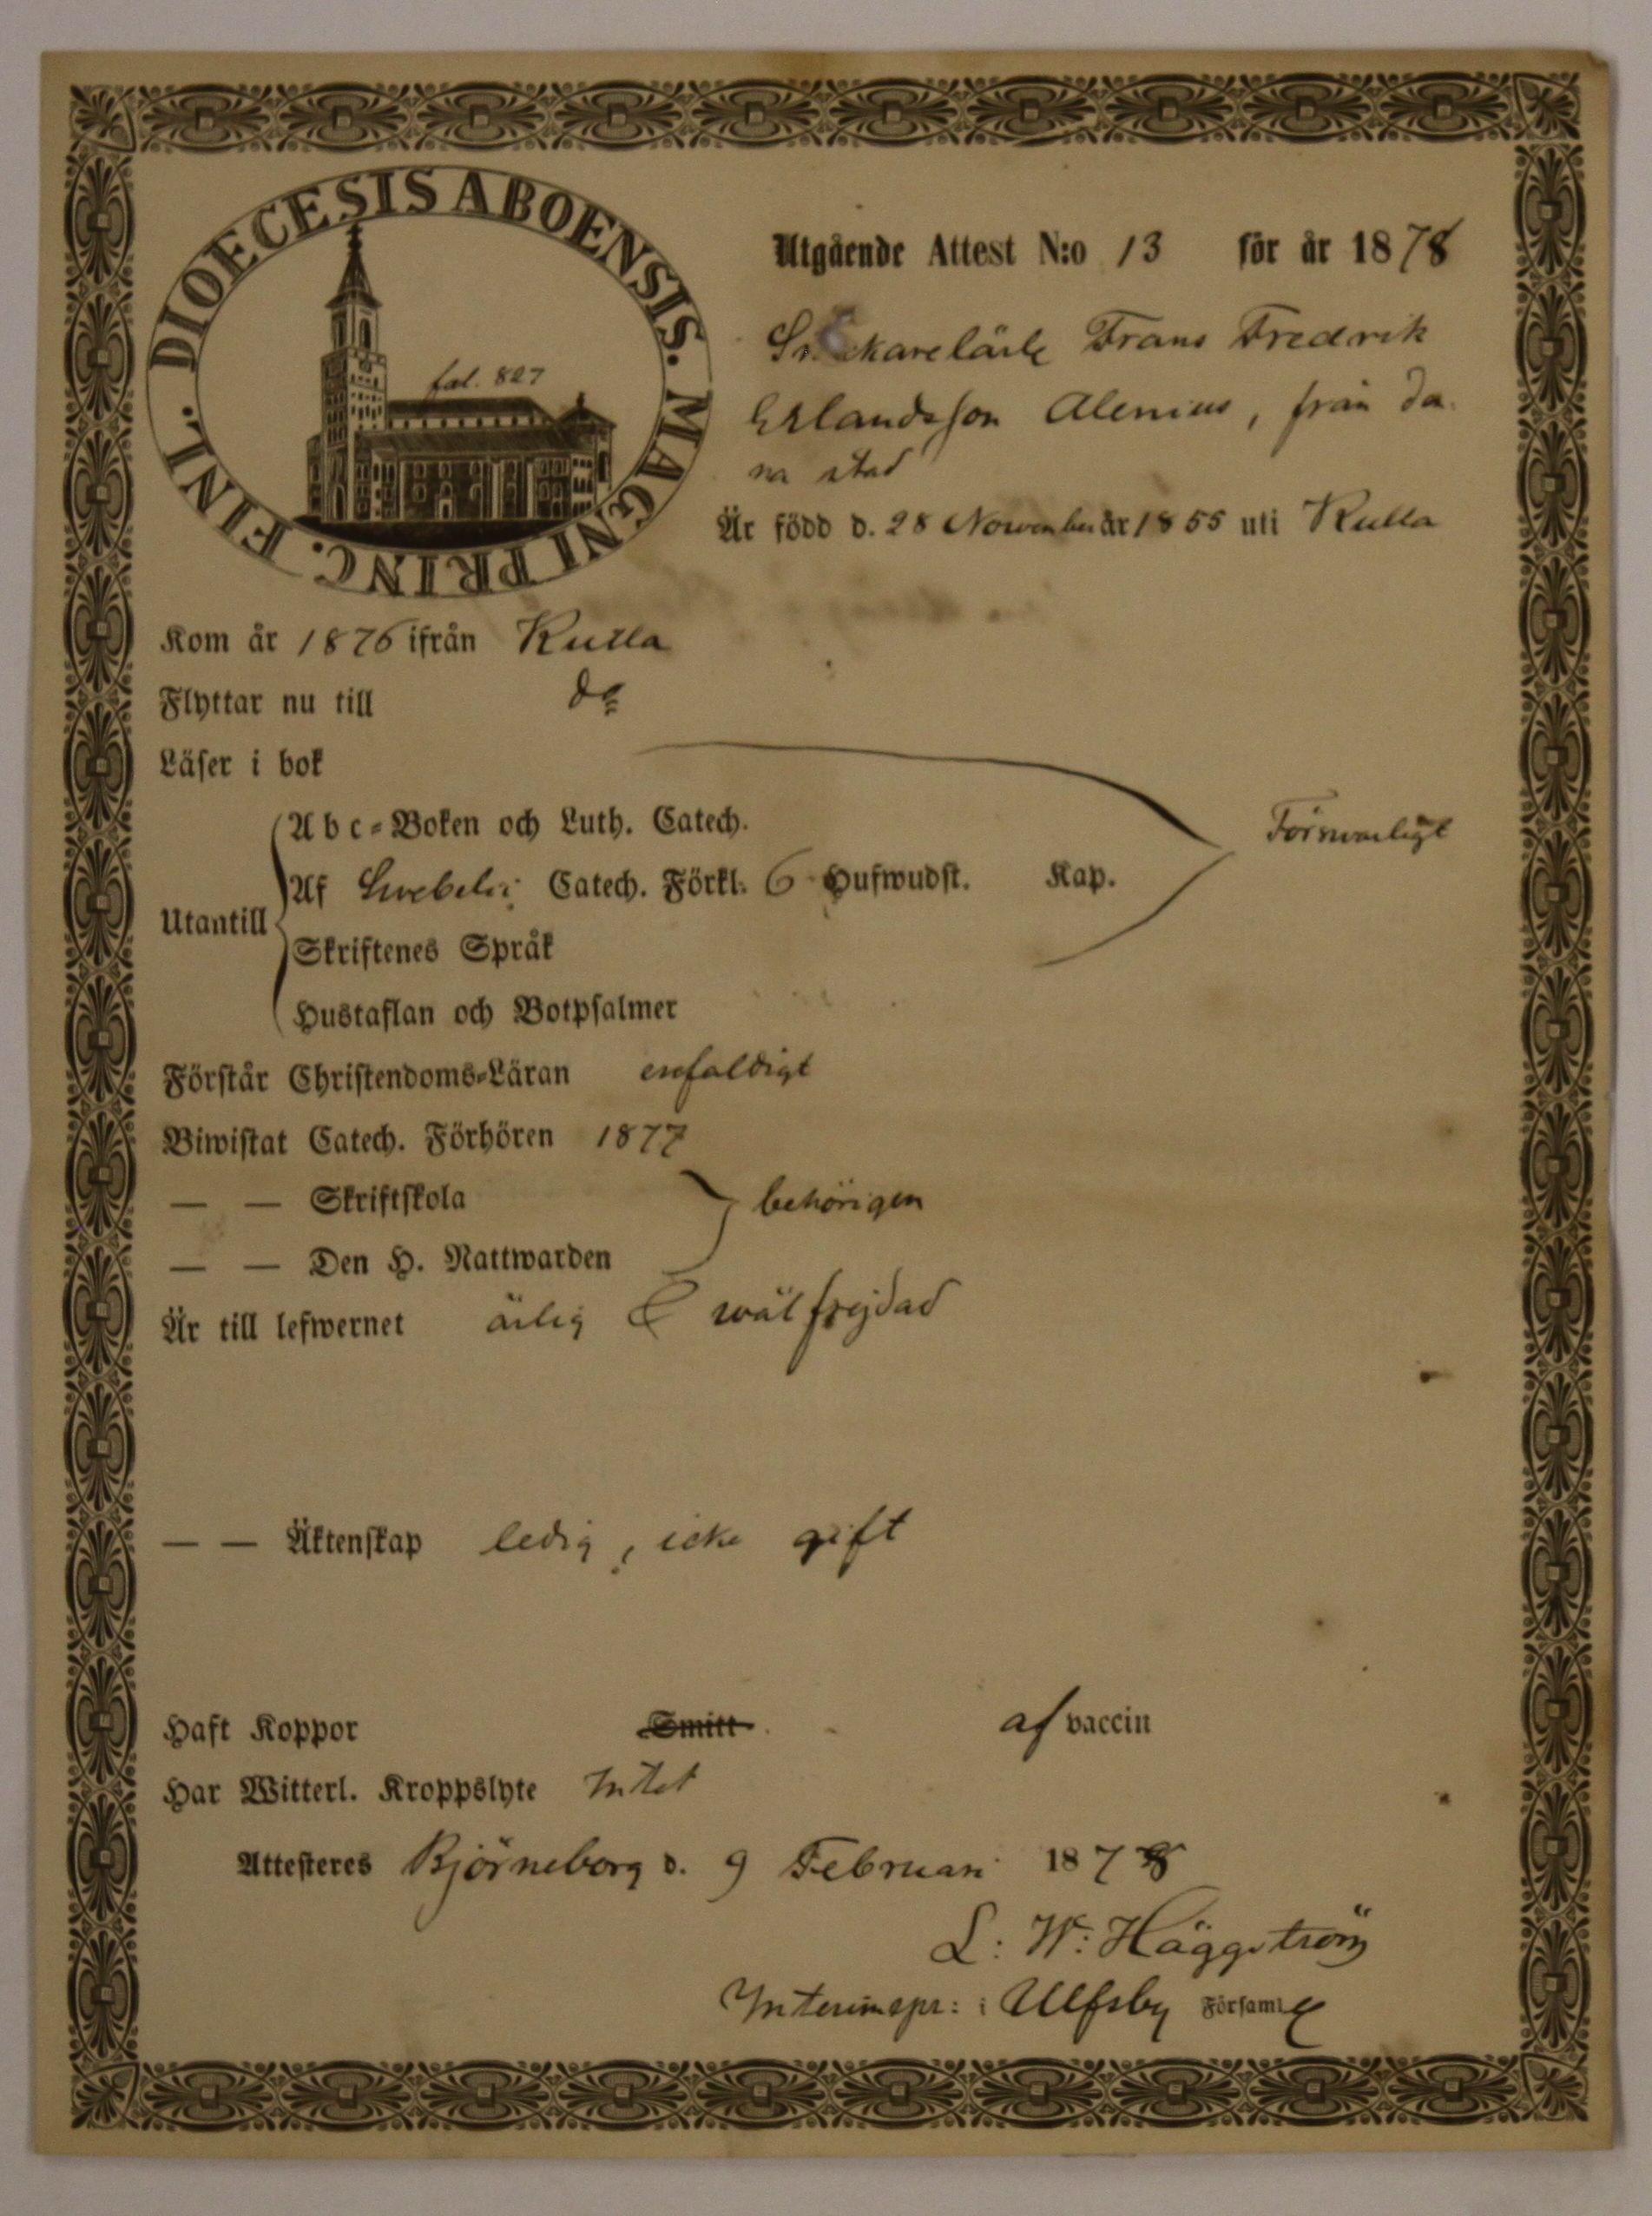 DIOECESIS ABOENSIS. MAGNI PRINC. FINL.
fol. 827
Utgående Attest N:o 13 för år 1878
Frans Fredrik
Erlandsson Alenius, från den-
na stad
Är född d. 28 November år 1855 uti Kulla
Kom år 1876 ifrån Kulla
Flyttar nu till do
Läser i bok
Försvarligt
Utantill
Abc-Boken och Luth. Catech.
Af Svebelii Catech. Förkl. 6 Hufwudst. Kap.
Skriftenes Språk
Hustaflan och Botpsalmer
Förstår Christendoms-Läran enfaldigt
Biwistat Catech. Förhören 1877
— — Skriftskola
behörigen
— — Den H. Nattwarden
Är till lefwernet ärlig & wälfrejdad
— — Äktenskap ledig, icke gift
Haft Koppor Smitt af vaccin
Har Witterl. Kroppslyte Intet
Attesteres Björneborg d. 9 Februari 1878
L: W: Häggström
Interimspr: i Ulfsby Församl